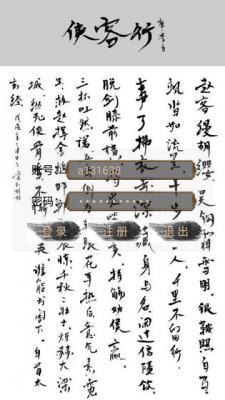 侠客行
赵客缦胡缨吴钩霜雪明银鞍照白马
飒沓如流星十步一人千里不留行
事了拂衣去深藏身与名闲过信陵饮
脱剑膝前横持觞劝侯嬴
三杯吐然诺五倒为眼花耳热后意气素霓
救赵挥金千秋二壮士烜赫大梁
城纵死侠骨谁能书阁下白首太
玄经
账号
a131638
密码
登录
注册
退出